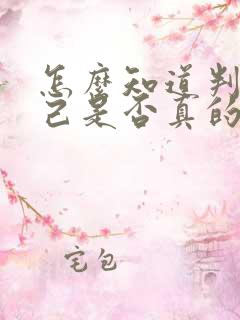 怎麽知道判
己是否真的
宅包